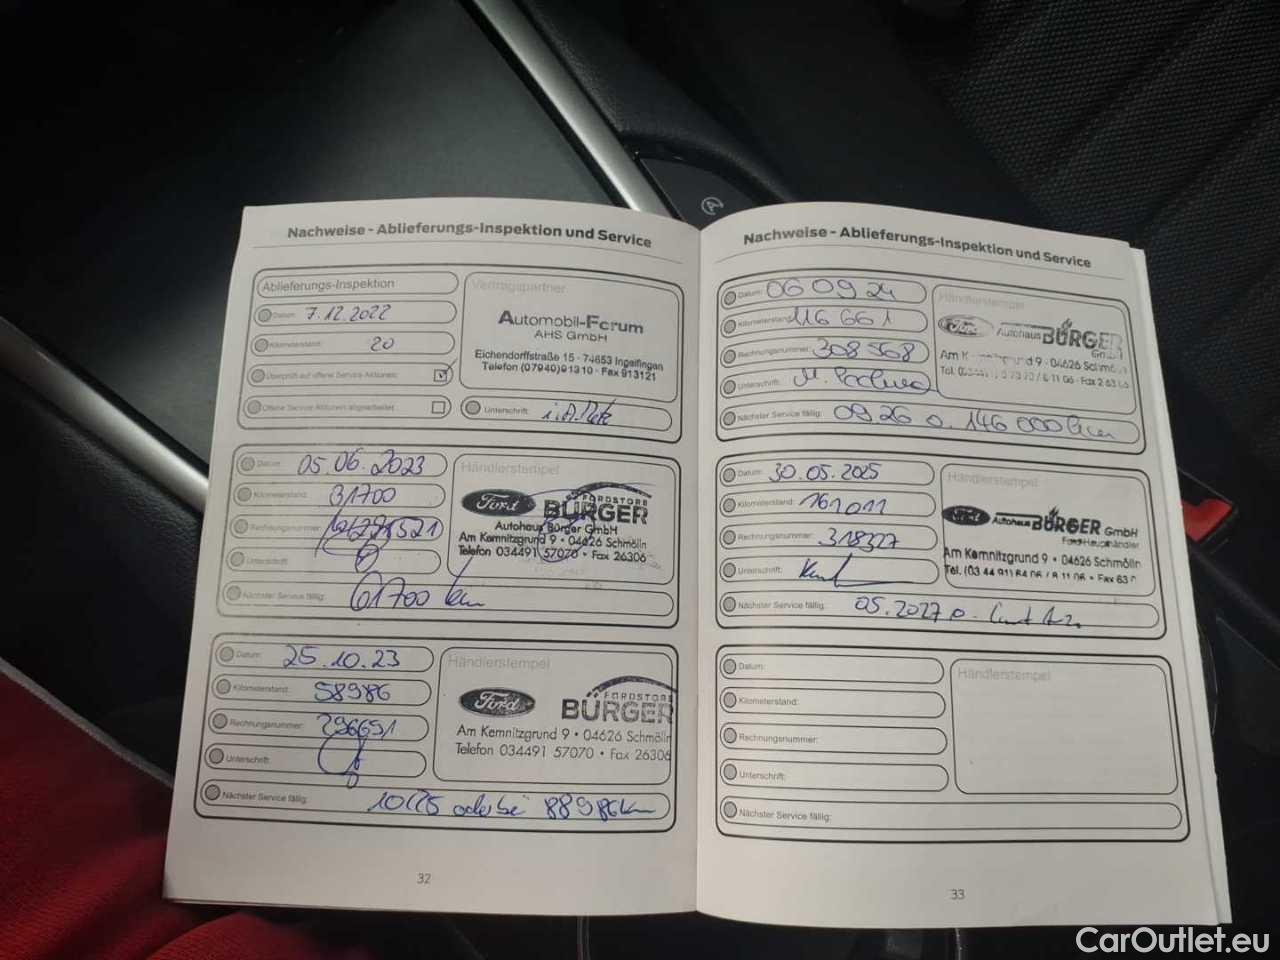 Nachweise - Ablieferungs-Inspektion und Service
Ablieferungs-Inspektion
Datum: 7.12.2022
Kilometerstand: 20
Überprüft auf offene Service-Aktionen:
Offene Service Aktionen abgearbeitet
Vertragspartner
Automobil-Forum
AHS GmbH
Eichendorffstraße 15 · 74653 Ingelfingen
Telefon (07940) 91310 · Fax 913121
Unterschrift:
Datum: 05.06.2023
Kilometerstand: 31700
Rechnungsnummer:
Unterschrift:
Nächster Service fällig: 61700 km
Händlerstempel
Ford FORDSTORE
BÜRGER
Autohaus Bürger GmbH
Am Kemnitzgrund 9 • 04626 Schmölln
Telefon 034491 57070 • Fax 26306
Datum: 25.10.23
Kilometerstand: 58986
Rechnungsnummer: 296651
Unterschrift:
Nächster Service fällig: 10/25 oder bei 88986km
Händlerstempel
Ford FORDSTORE
BÜRGER
Am Kemnitzgrund 9 • 04626 Schmölln
Telefon 034491 57070 • Fax 26306
32
Nachweise - Ablieferungs-Inspektion und Service
Datum: 06 09 24
Kilometerstand: 116 661
Rechnungsnummer: 308 568
Unterschrift:
Nächster Service fällig: 09.26 o. 146 000 km
Händlerstempel
Ford Autohaus BÜRGER
GmbH
Am Kemnitzgrund 9 · 04626 Schmölln
Datum: 30.05.2025
Kilometerstand: 161011
Rechnungsnummer: 318327
Unterschrift:
Nächster Service fällig: 05.2027 o.
Händlerstempel
Ford Autohaus BÜRGER GmbH
Ford-Haupthändler
Am Kemnitzgrund 9 • 04626 Schmölln
Datum:
Kilometerstand:
Rechnungsnummer:
Unterschrift:
Nächster Service fällig:
Händlerstempel
33
CarOutlet.eu